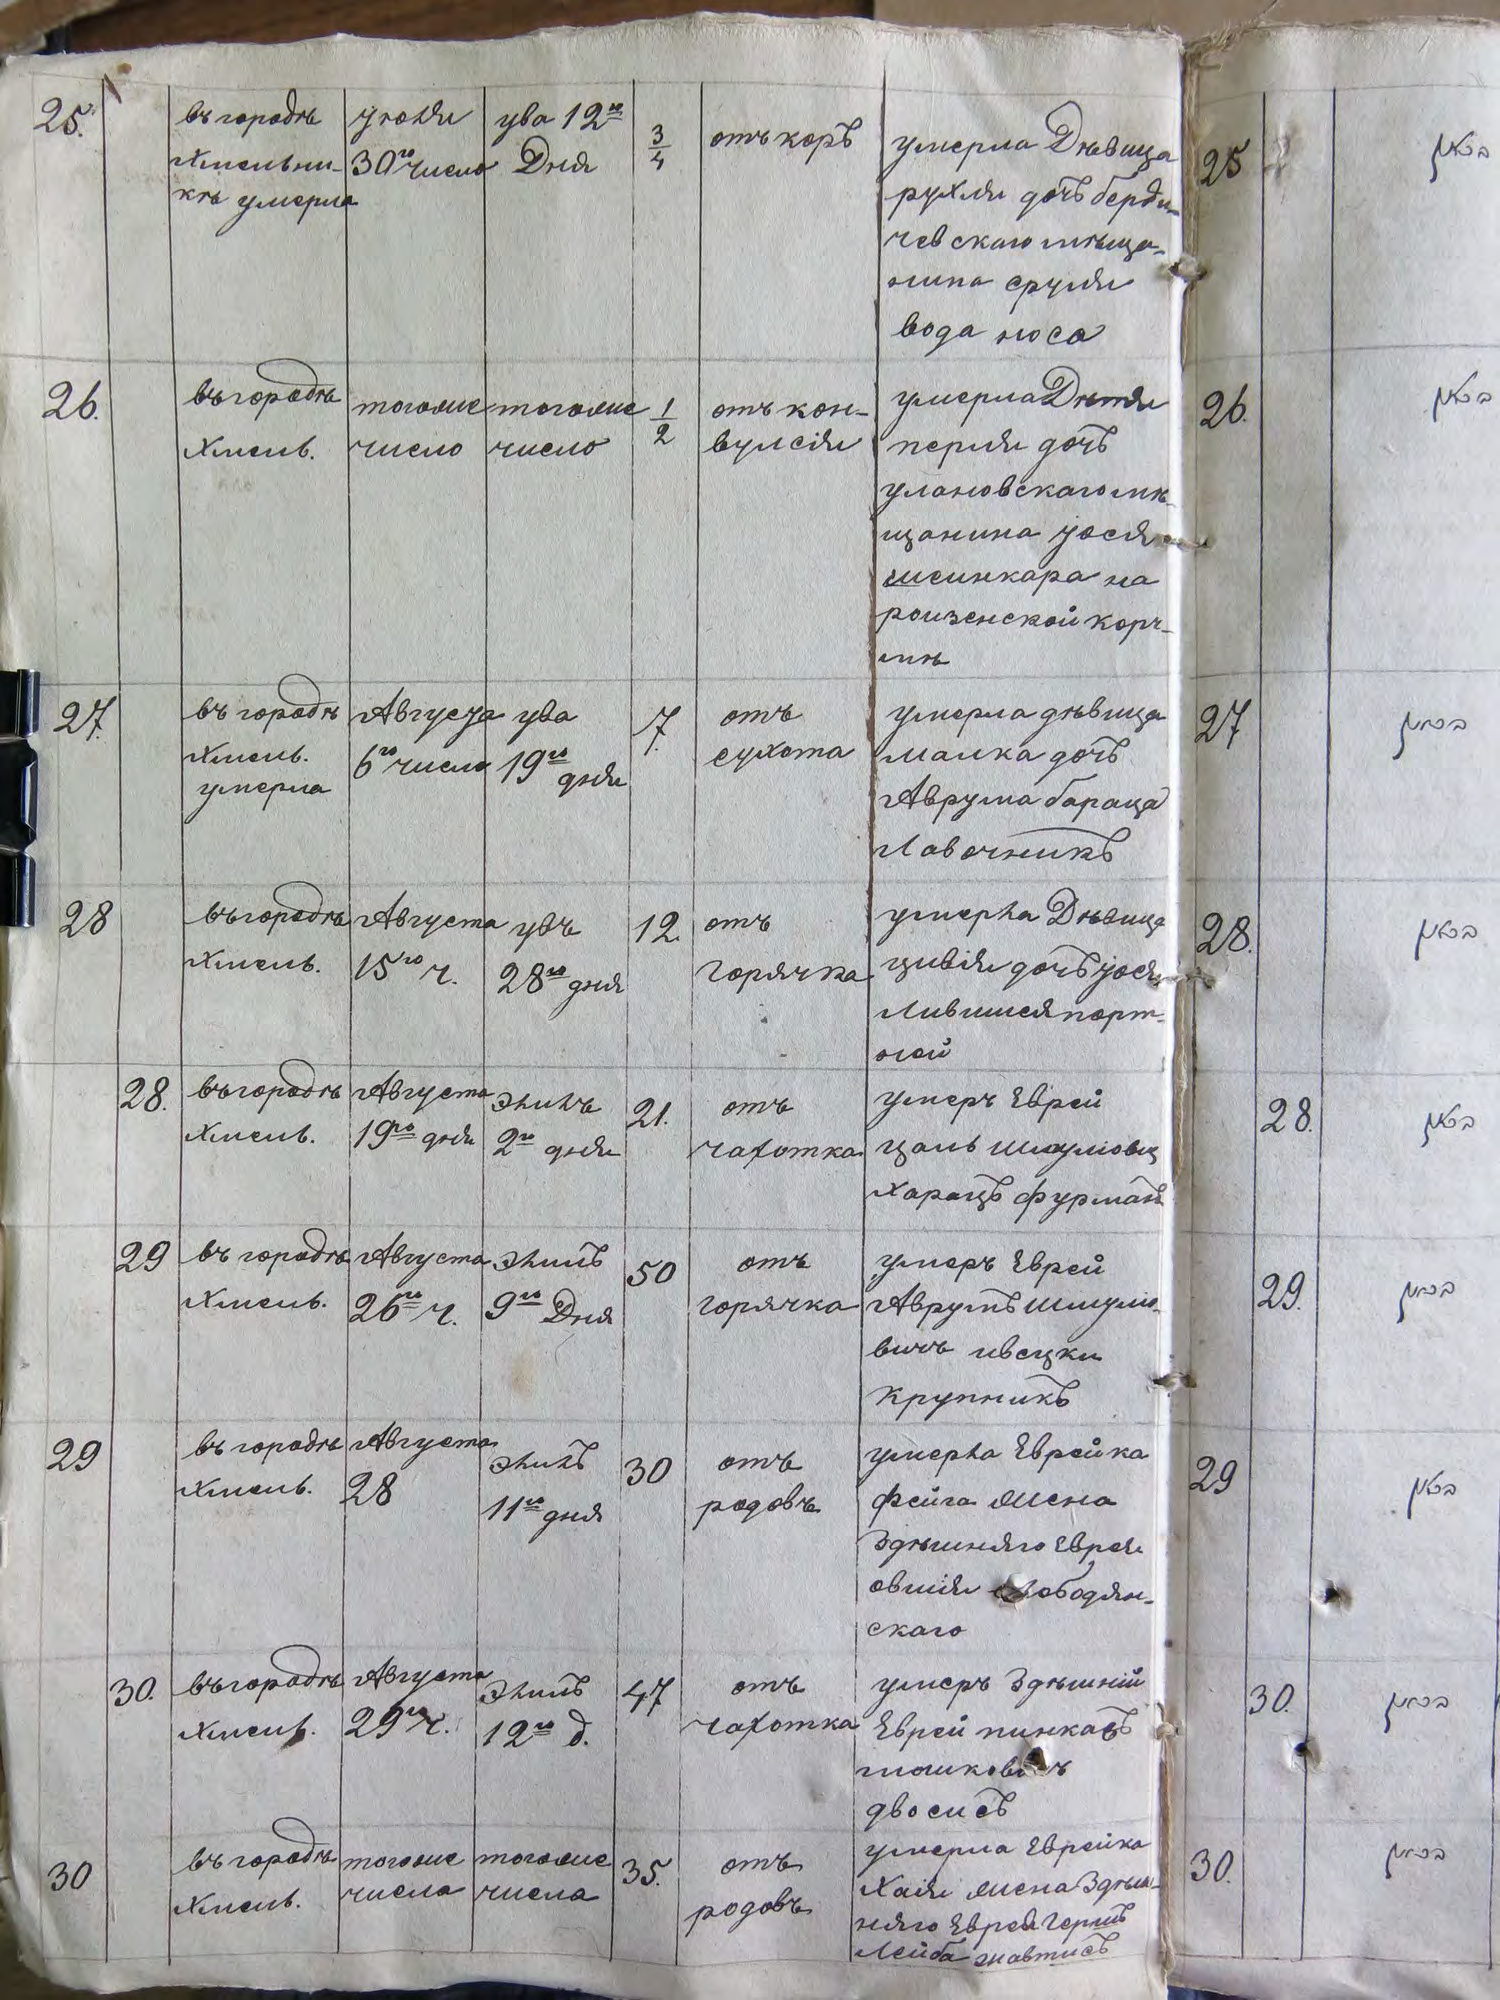 25.
въ городѣ
Хмельни-
кѣ умерла
Уюля
30го число
ува 12го
Дня
3/4
отъ коръ
умерла Дѣвица
рухля дочь берди-
чевскаго мѣща-
нина сруля
вода носа
25
26.
въ городѣ
Хмель.
тогоже
число
тогоже
число
1/2
отъ кон-
вулсія
умерла Дѣтя
перля дочь
улановскаго мѣ-
щанина Уося
шеинкара на
корч-
мѣ
26.
27.
въ городѣ
Хмель.
умерла
Августа
6го число
ува
19го
дня
7.
отъ
сухота
умерла дѣвица
малка дочь
Аврума бараца
Лавочникъ
27
28
въ городѣ
Хмель.
Августа
15го ч.
увъ
28го дня
12.
отъ
горячка
умерла Дѣвица
цивія дочь Уося
порт-
ной
28.
28.
въ городѣ
Хмель.
Августа
19го дня
элилъ
2го дня
21.
отъ
чахотка
умеръ Еврей
цаль
Харацъ фурманъ
28.
29
въ городѣ
Хмель.
Августа
26го ч.
элилъ
9го Дня
50
отъ
горячка
умеръ Еврей
Аврумъ Шмулю-
вичъ
крупникъ
29.
29
въ городѣ
Хмель.
Августа
28
элилъ
11го дня
30
отъ
родовъ
умерла Еврейка
фейга жена
здѣшняго Еврея
овшія слободян-
скаго
29
30.
въ городѣ
Хмель.
Августа
29го ч.
элилъ
12го д.
47
отъ
чахотка
умеръ здѣшній
Еврей пинкасъ
мошковичъ
двосисъ
30.
30
въ городѣ
Хмель.
тогоже
числа
тогоже
числа
35.
отъ
родовъ
умерла Еврейка
Хаія жена здѣш-
няго Еврея Гершъ
Лейба
30.